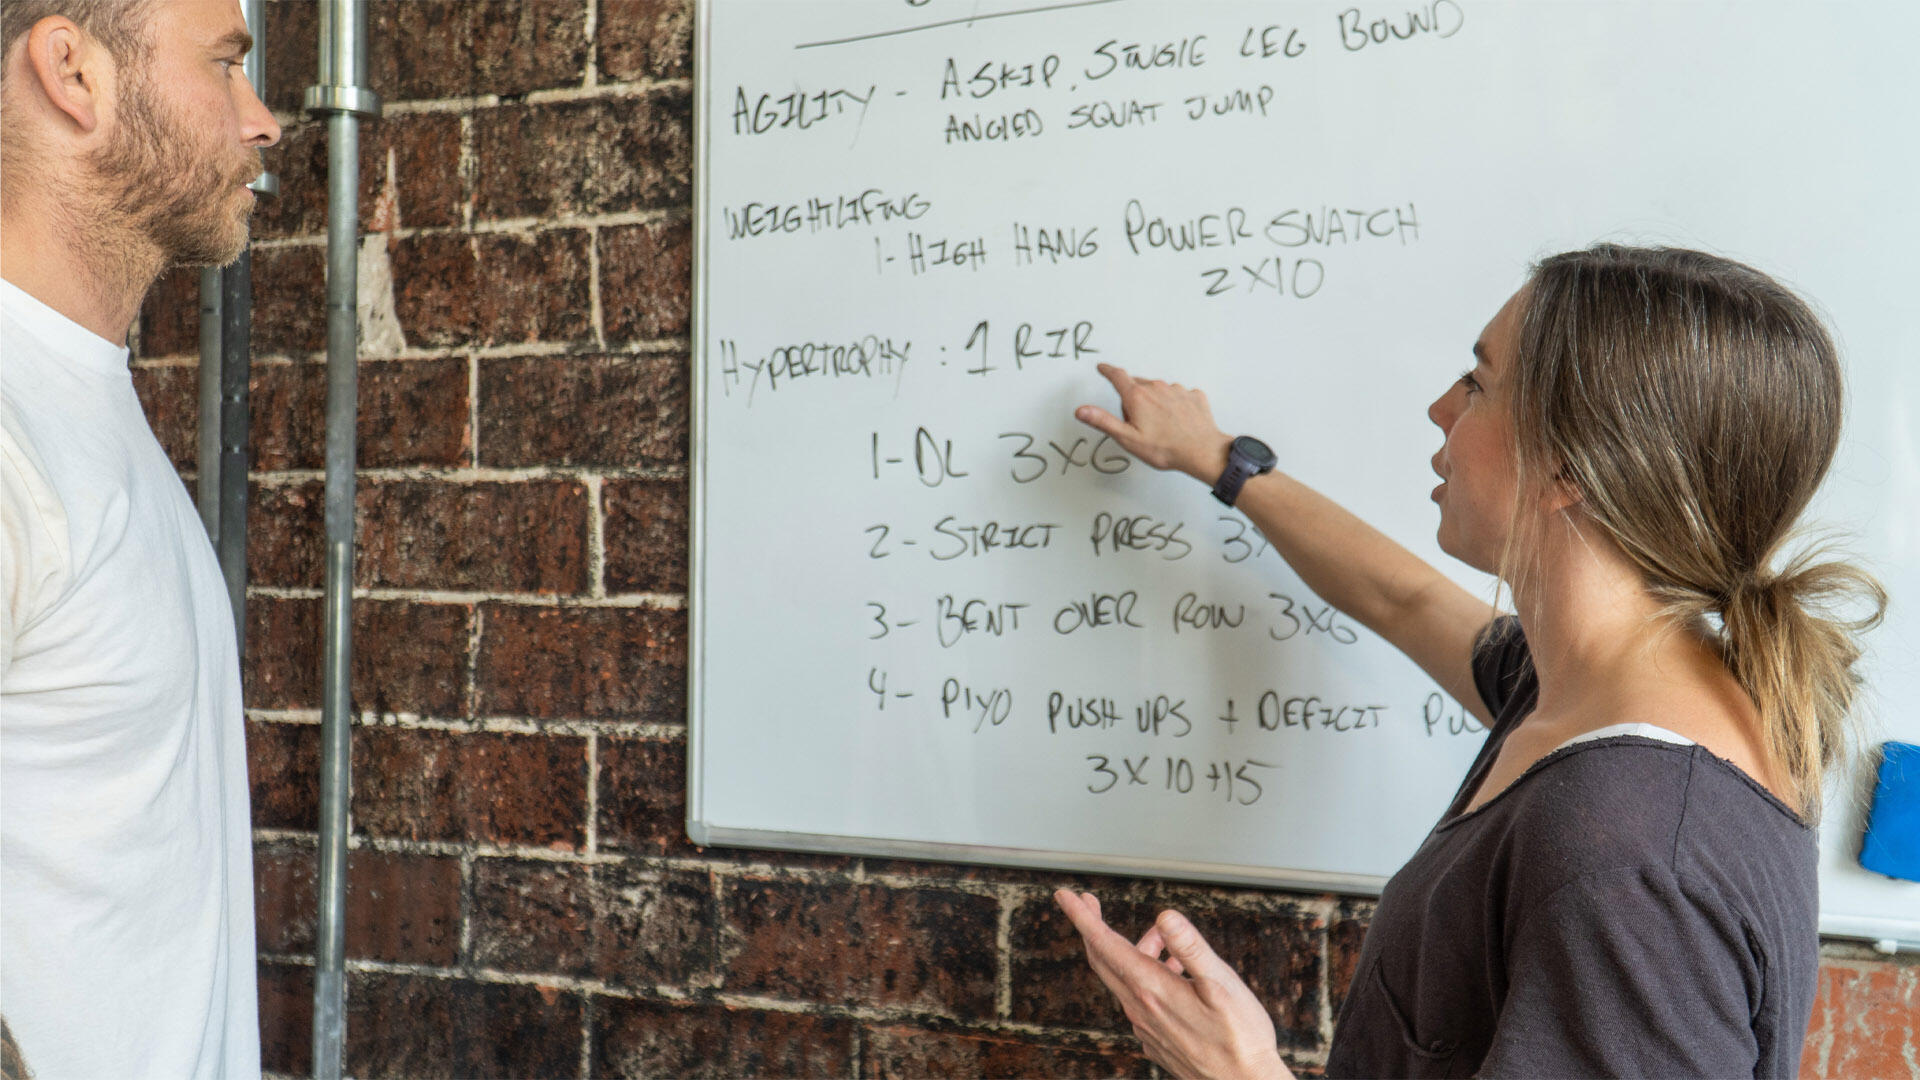 AGILITY - A-SKIP, SINGLE LEG BOUND
ANGLED SQUAT JUMP
WEIGHTLIFTING
1- HIGH HANG POWER SNATCH
2X10
HYPERTROPHY : 1 RIR
1- DL 3X6
2- STRICT PRESS 3X
3- BENT OVER ROW 3X6
4- PIYO PUSH UPS + DEFICIT
3X10+15